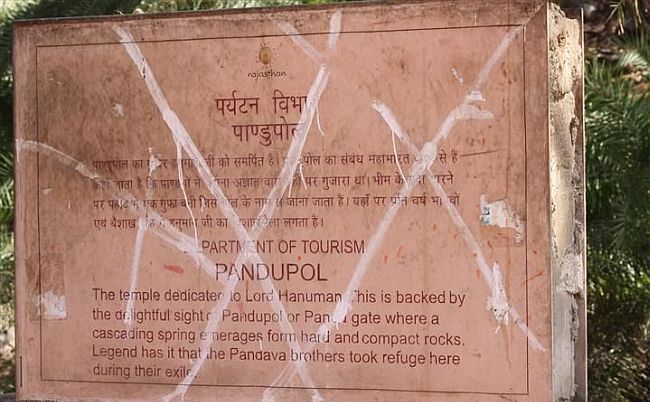 rajasthan
पर्यटन विभाग
पाण्डुपोल
पाण्डूपाल का जी को समर्पित है। का संबंध महाभारत से है
जाता है कि अज्ञात पर गुजारा था। भीम के मारने
पर एक गुफा के नाम से जाना जाता है। यहाँ पर प्रति वर्ष
एवं वैशाख में हनुमान जी का मेला लगता है।
DEPARTMENT OF TOURISM
PANDUPOL
The temple dedicated to Lord Hanuman. This is backed by
the delightful sight of Pandupol or Pandu gate where a
cascading spring emerages form hard and compact rocks.
Legend has it that the Pandava brothers took refuge here
during their exile.